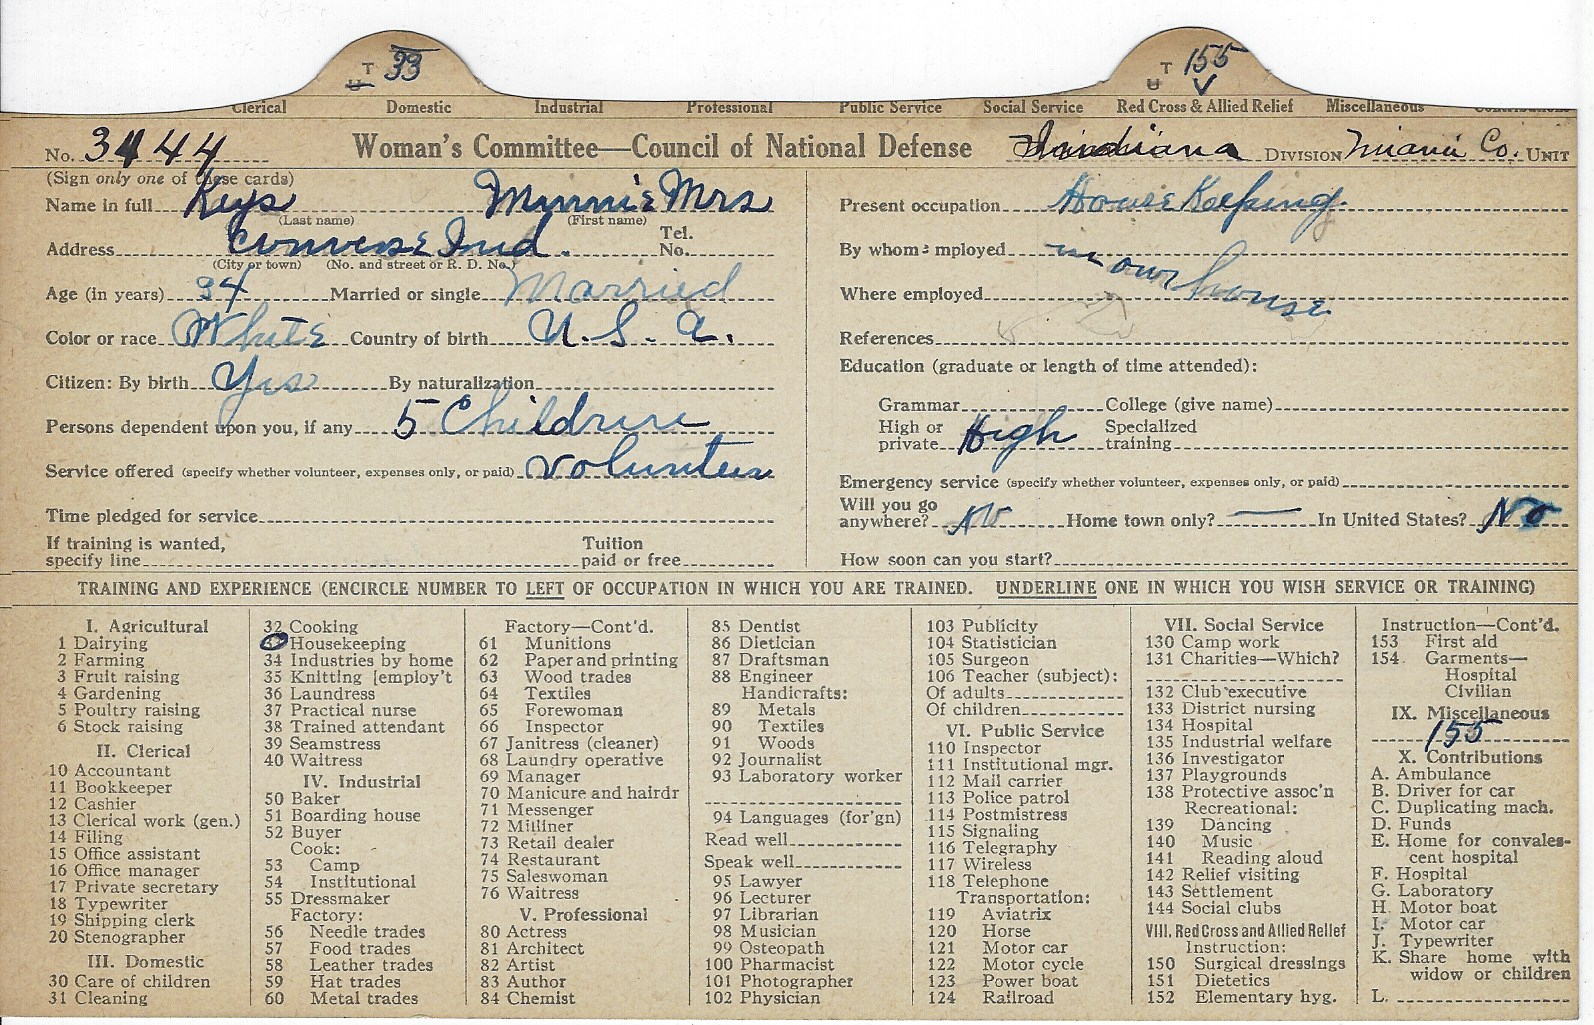 T 33
U
T 155
U
Clerical Domestic Industrial Professional Public Service Social Service Red Cross & Allied Relief Miscellaneous Contributions
No. 3444 Woman's Committee—Council of National Defense Indiana DIVISION Miami Co. UNIT
(Sign only one of these cards)
Name in full Keys Minnie Mrs
(Last name) (First name)
Address Converse Ind. Tel. No.
(City or town) (No. and street or R. D. No.)
Age (in years) 34 Married or single Married
Color or race White Country of birth U.S.A.
Citizen: By birth Yes By naturalization
Persons dependent upon you, if any 5 Children
Service offered (specify whether volunteer, expenses only, or paid) Volunteer
Time pledged for service
If training is wanted, specify line Tuition paid or free
Present occupation House Keeping
By whom employed in our house
Where employed
References
Education (graduate or length of time attended):
Grammar College (give name)
High or private High Specialized training
Emergency service (specify whether volunteer, expenses only, or paid)
Will you go anywhere? No Home town only? — In United States? No
How soon can you start?
TRAINING AND EXPERIENCE (ENCIRCLE NUMBER TO LEFT OF OCCUPATION IN WHICH YOU ARE TRAINED. UNDERLINE ONE IN WHICH YOU WISH SERVICE OR TRAINING)
I. Agricultural
1 Dairying
2 Farming
3 Fruit raising
4 Gardening
5 Poultry raising
6 Stock raising
II. Clerical
10 Accountant
11 Bookkeeper
12 Cashier
13 Clerical work (gen.)
14 Filing
15 Office assistant
16 Office manager
17 Private secretary
18 Typewriter
19 Shipping clerk
20 Stenographer
III. Domestic
30 Care of children
31 Cleaning
32 Cooking
33 Housekeeping
34 Industries by home
35 Knitting [employ't
36 Laundress
37 Practical nurse
38 Trained attendant
39 Seamstress
40 Waitress
IV. Industrial
50 Baker
51 Boarding house
52 Buyer
Cook:
53 Camp
54 Institutional
55 Dressmaker
Factory:
56 Needle trades
57 Food trades
58 Leather trades
59 Hat trades
60 Metal trades
Factory—Cont'd.
61 Munitions
62 Paper and printing
63 Wood trades
64 Textiles
65 Forewoman
66 Inspector
67 Janitress (cleaner)
68 Laundry operative
69 Manager
70 Manicure and hairdr
71 Messenger
72 Milliner
73 Retail dealer
74 Restaurant
75 Saleswoman
76 Waitress
V. Professional
80 Actress
81 Architect
82 Artist
83 Author
84 Chemist
85 Dentist
86 Dietician
87 Draftsman
88 Engineer
Handicrafts:
89 Metals
90 Textiles
91 Woods
92 Journalist
93 Laboratory worker
94 Languages (for'gn)
Read well
Speak well
95 Lawyer
96 Lecturer
97 Librarian
98 Musician
99 Osteopath
100 Pharmacist
101 Photographer
102 Physician
103 Publicity
104 Statistician
105 Surgeon
106 Teacher (subject):
Of adults
Of children
VI. Public Service
110 Inspector
111 Institutional mgr.
112 Mail carrier
113 Police patrol
114 Postmistress
115 Signaling
116 Telegraphy
117 Wireless
118 Telephone
Transportation:
119 Aviatrix
120 Horse
121 Motor car
122 Motor cycle
123 Power boat
124 Railroad
VII. Social Service
130 Camp work
131 Charities—Which?
132 Club executive
133 District nursing
134 Hospital
135 Industrial welfare
136 Investigator
137 Playgrounds
138 Protective assoc'n
Recreational:
139 Dancing
140 Music
141 Reading aloud
142 Relief visiting
143 Settlement
144 Social clubs
VIII. Red Cross and Allied Relief
Instruction:
150 Surgical dressings
151 Dietetics
152 Elementary hyg.
Instruction—Cont'd.
153 First aid
154 Garments—
Hospital
Civilian
IX. Miscellaneous
155
X. Contributions
A. Ambulance
B. Driver for car
C. Duplicating mach.
D. Funds
E. Home for convales-
cent hospital
F. Hospital
G. Laboratory
H. Motor boat
I. Motor car
J. Typewriter
K. Share home with
widow or children
L.